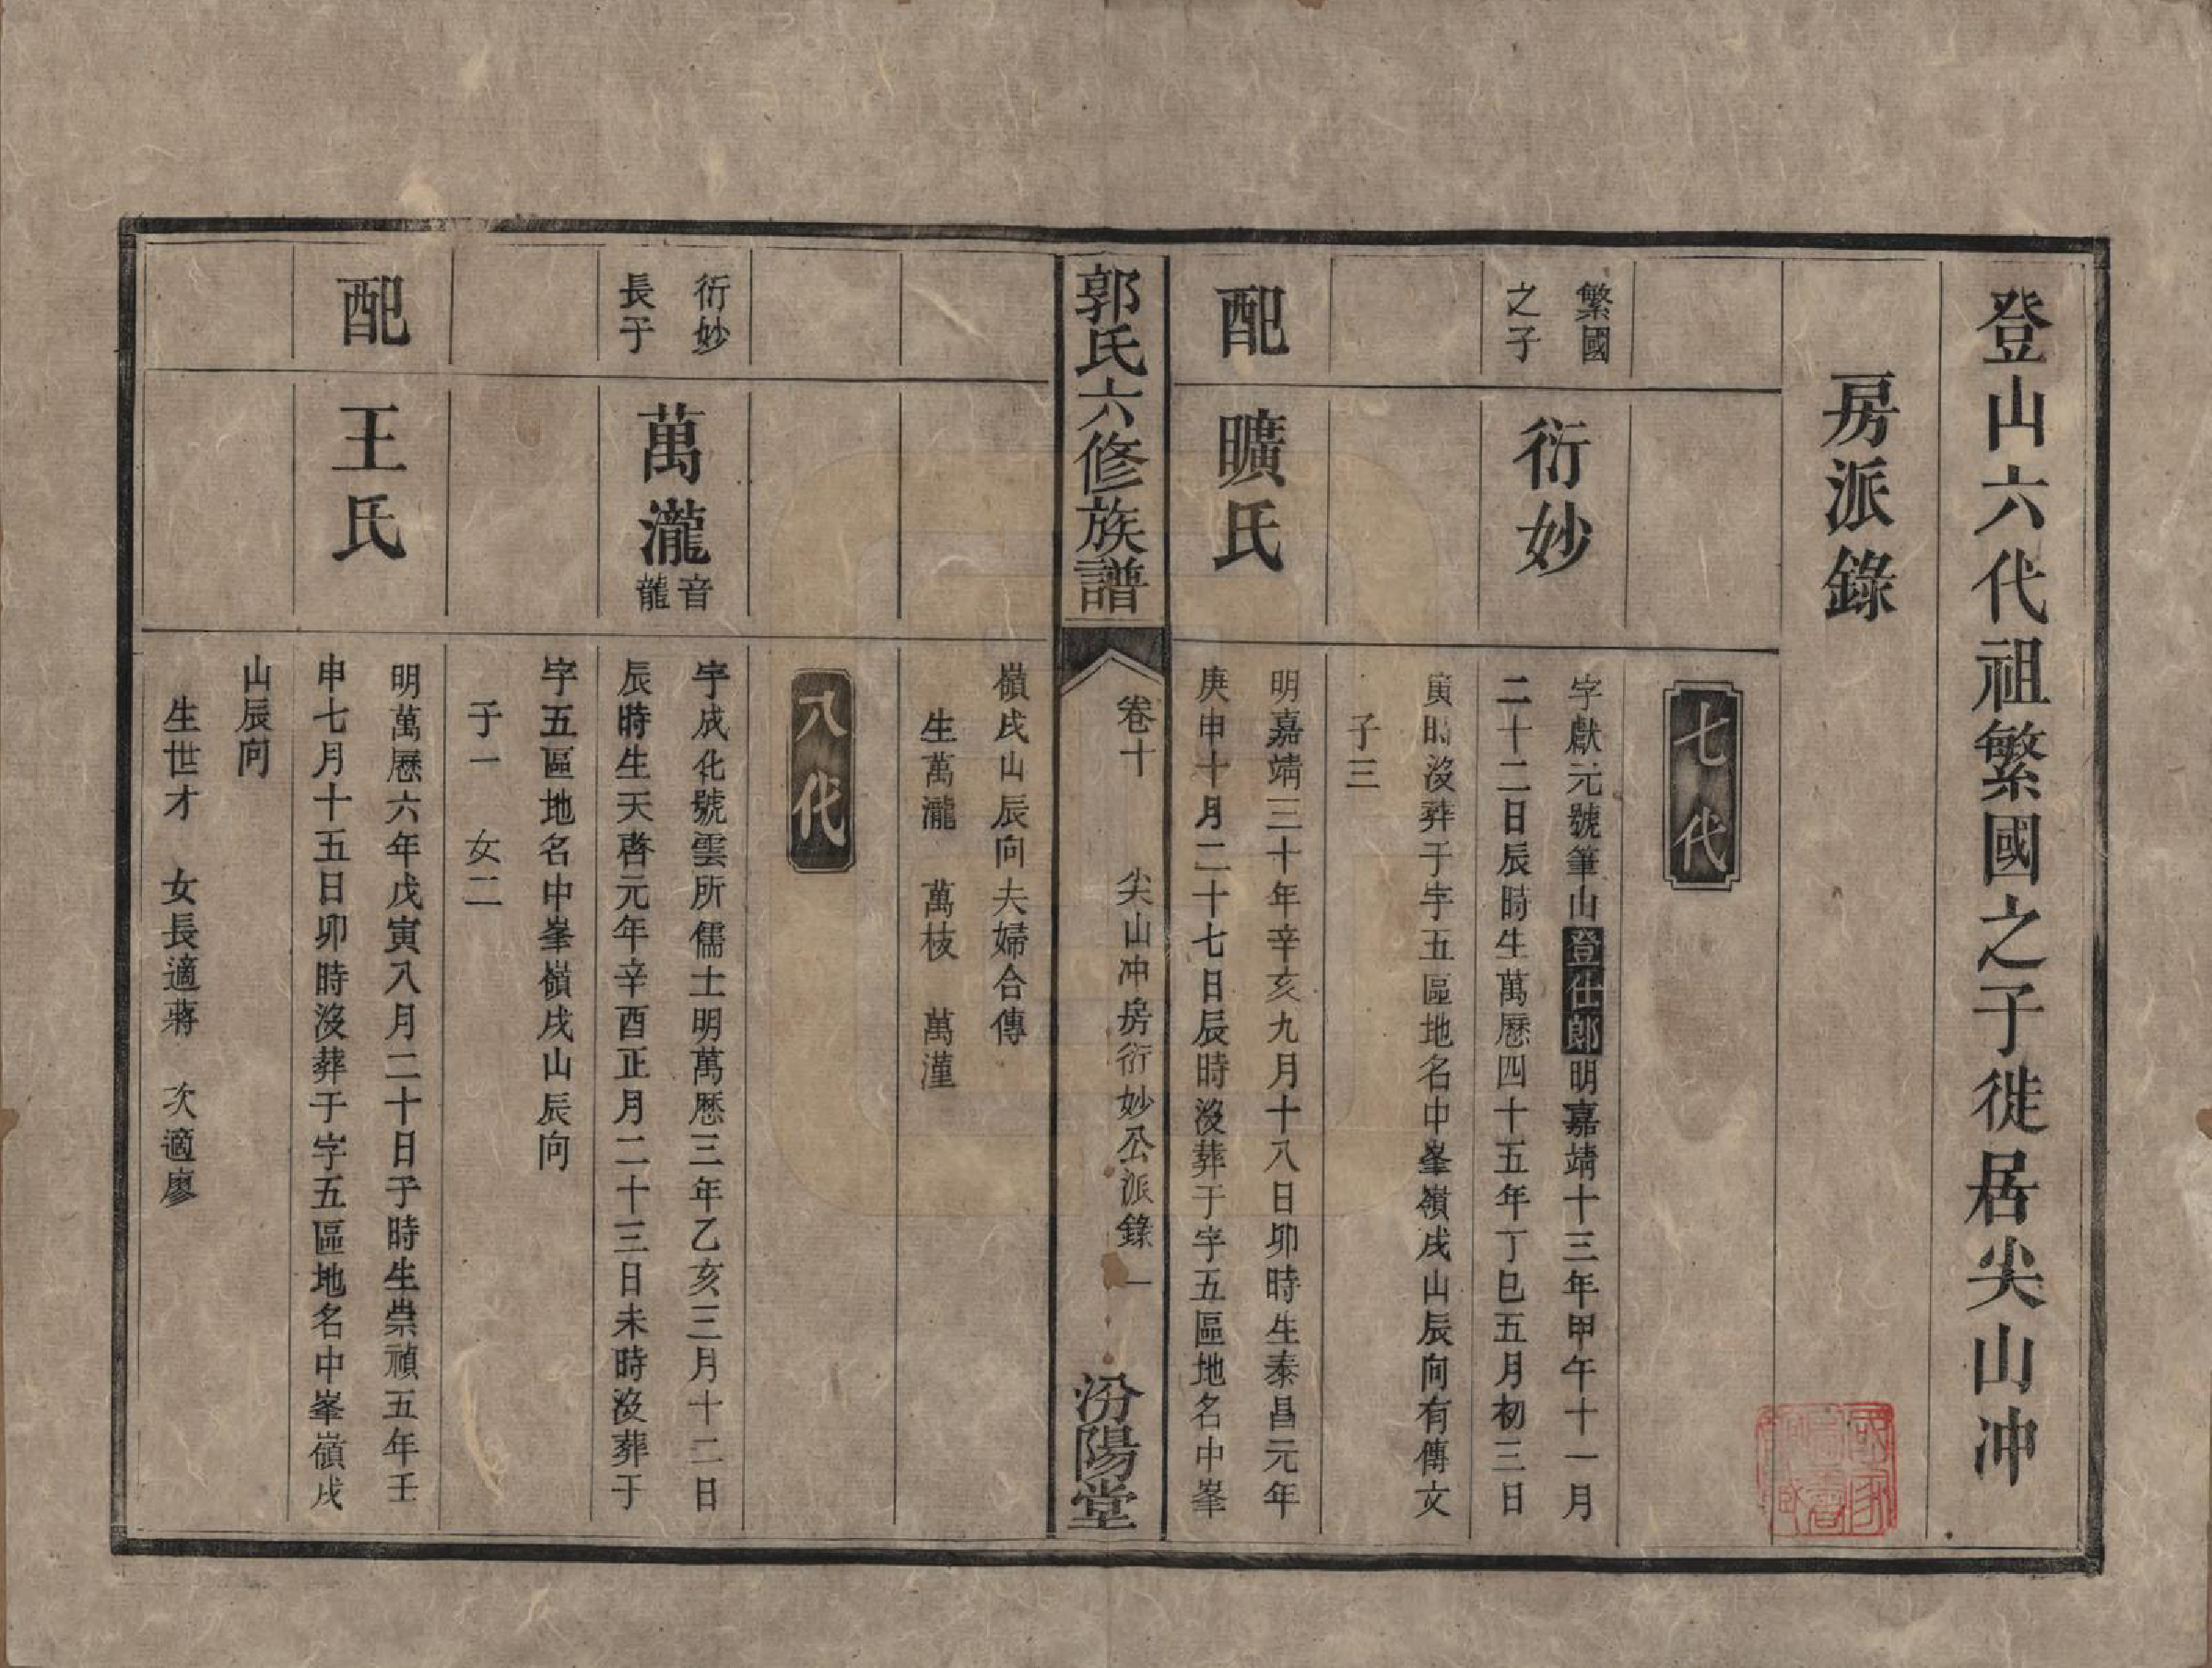 登山六代祖繁國之子徙居尖山冲
房派錄
七代
繁國
之子
衍妙
字獻元號筆山登仕郎明嘉靖十三年甲午十一月
二十二日辰時生萬歷四十五年丁巳五月初三日
寅時沒葬于字五區地名中峯嶺戌山辰向有傳文
子三
配
曠氏
明嘉靖三十年辛亥九月十八日卯時生泰昌元年
庚申十月二十七日辰時沒葬于字五區地名中峯
郭氏六修族譜
卷十
尖山冲房衍妙公派錄
一
汾陽堂
嶺戌山辰向夫婦合傳
生萬瀧 萬枝 萬漌
八代
衍妙
長子
萬瀧
音
龍
字成化號雲所儒士明萬歷三年乙亥三月十二日
辰時生天啓元年辛酉正月二十三日未時沒葬于
字五區地名中峯嶺戌山辰向
子一 女二
配
王氏
明萬歷六年戊寅八月二十日子時生崇禎五年壬
申七月十五日卯時沒葬于字五區地名中峯嶺戌
山辰向
生世才 女長適蔣 次適廖